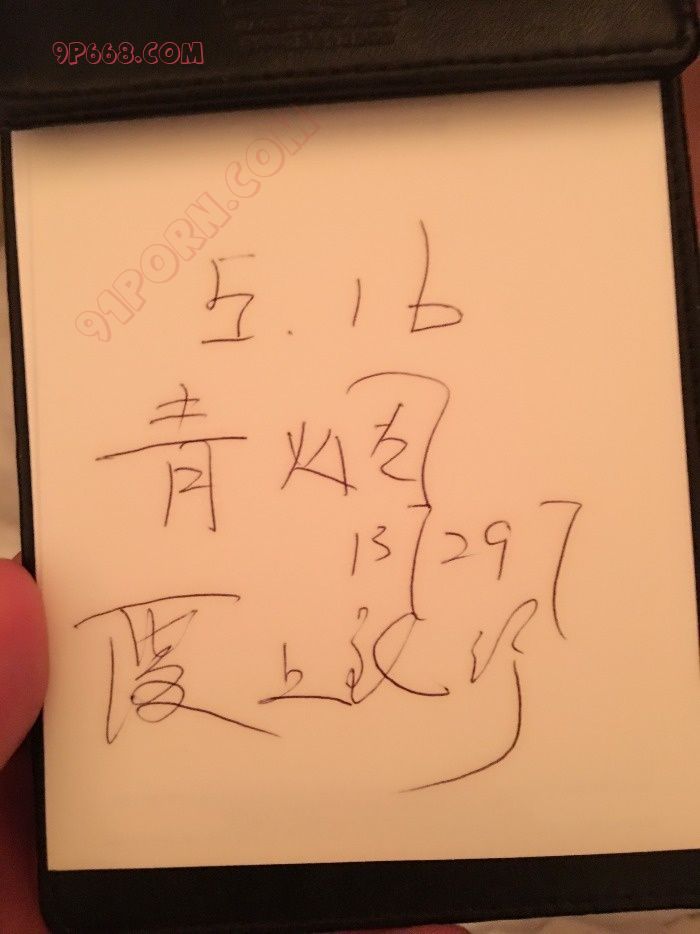 9P668.COM
91PORN.COM
5.16
青烟
137297
上